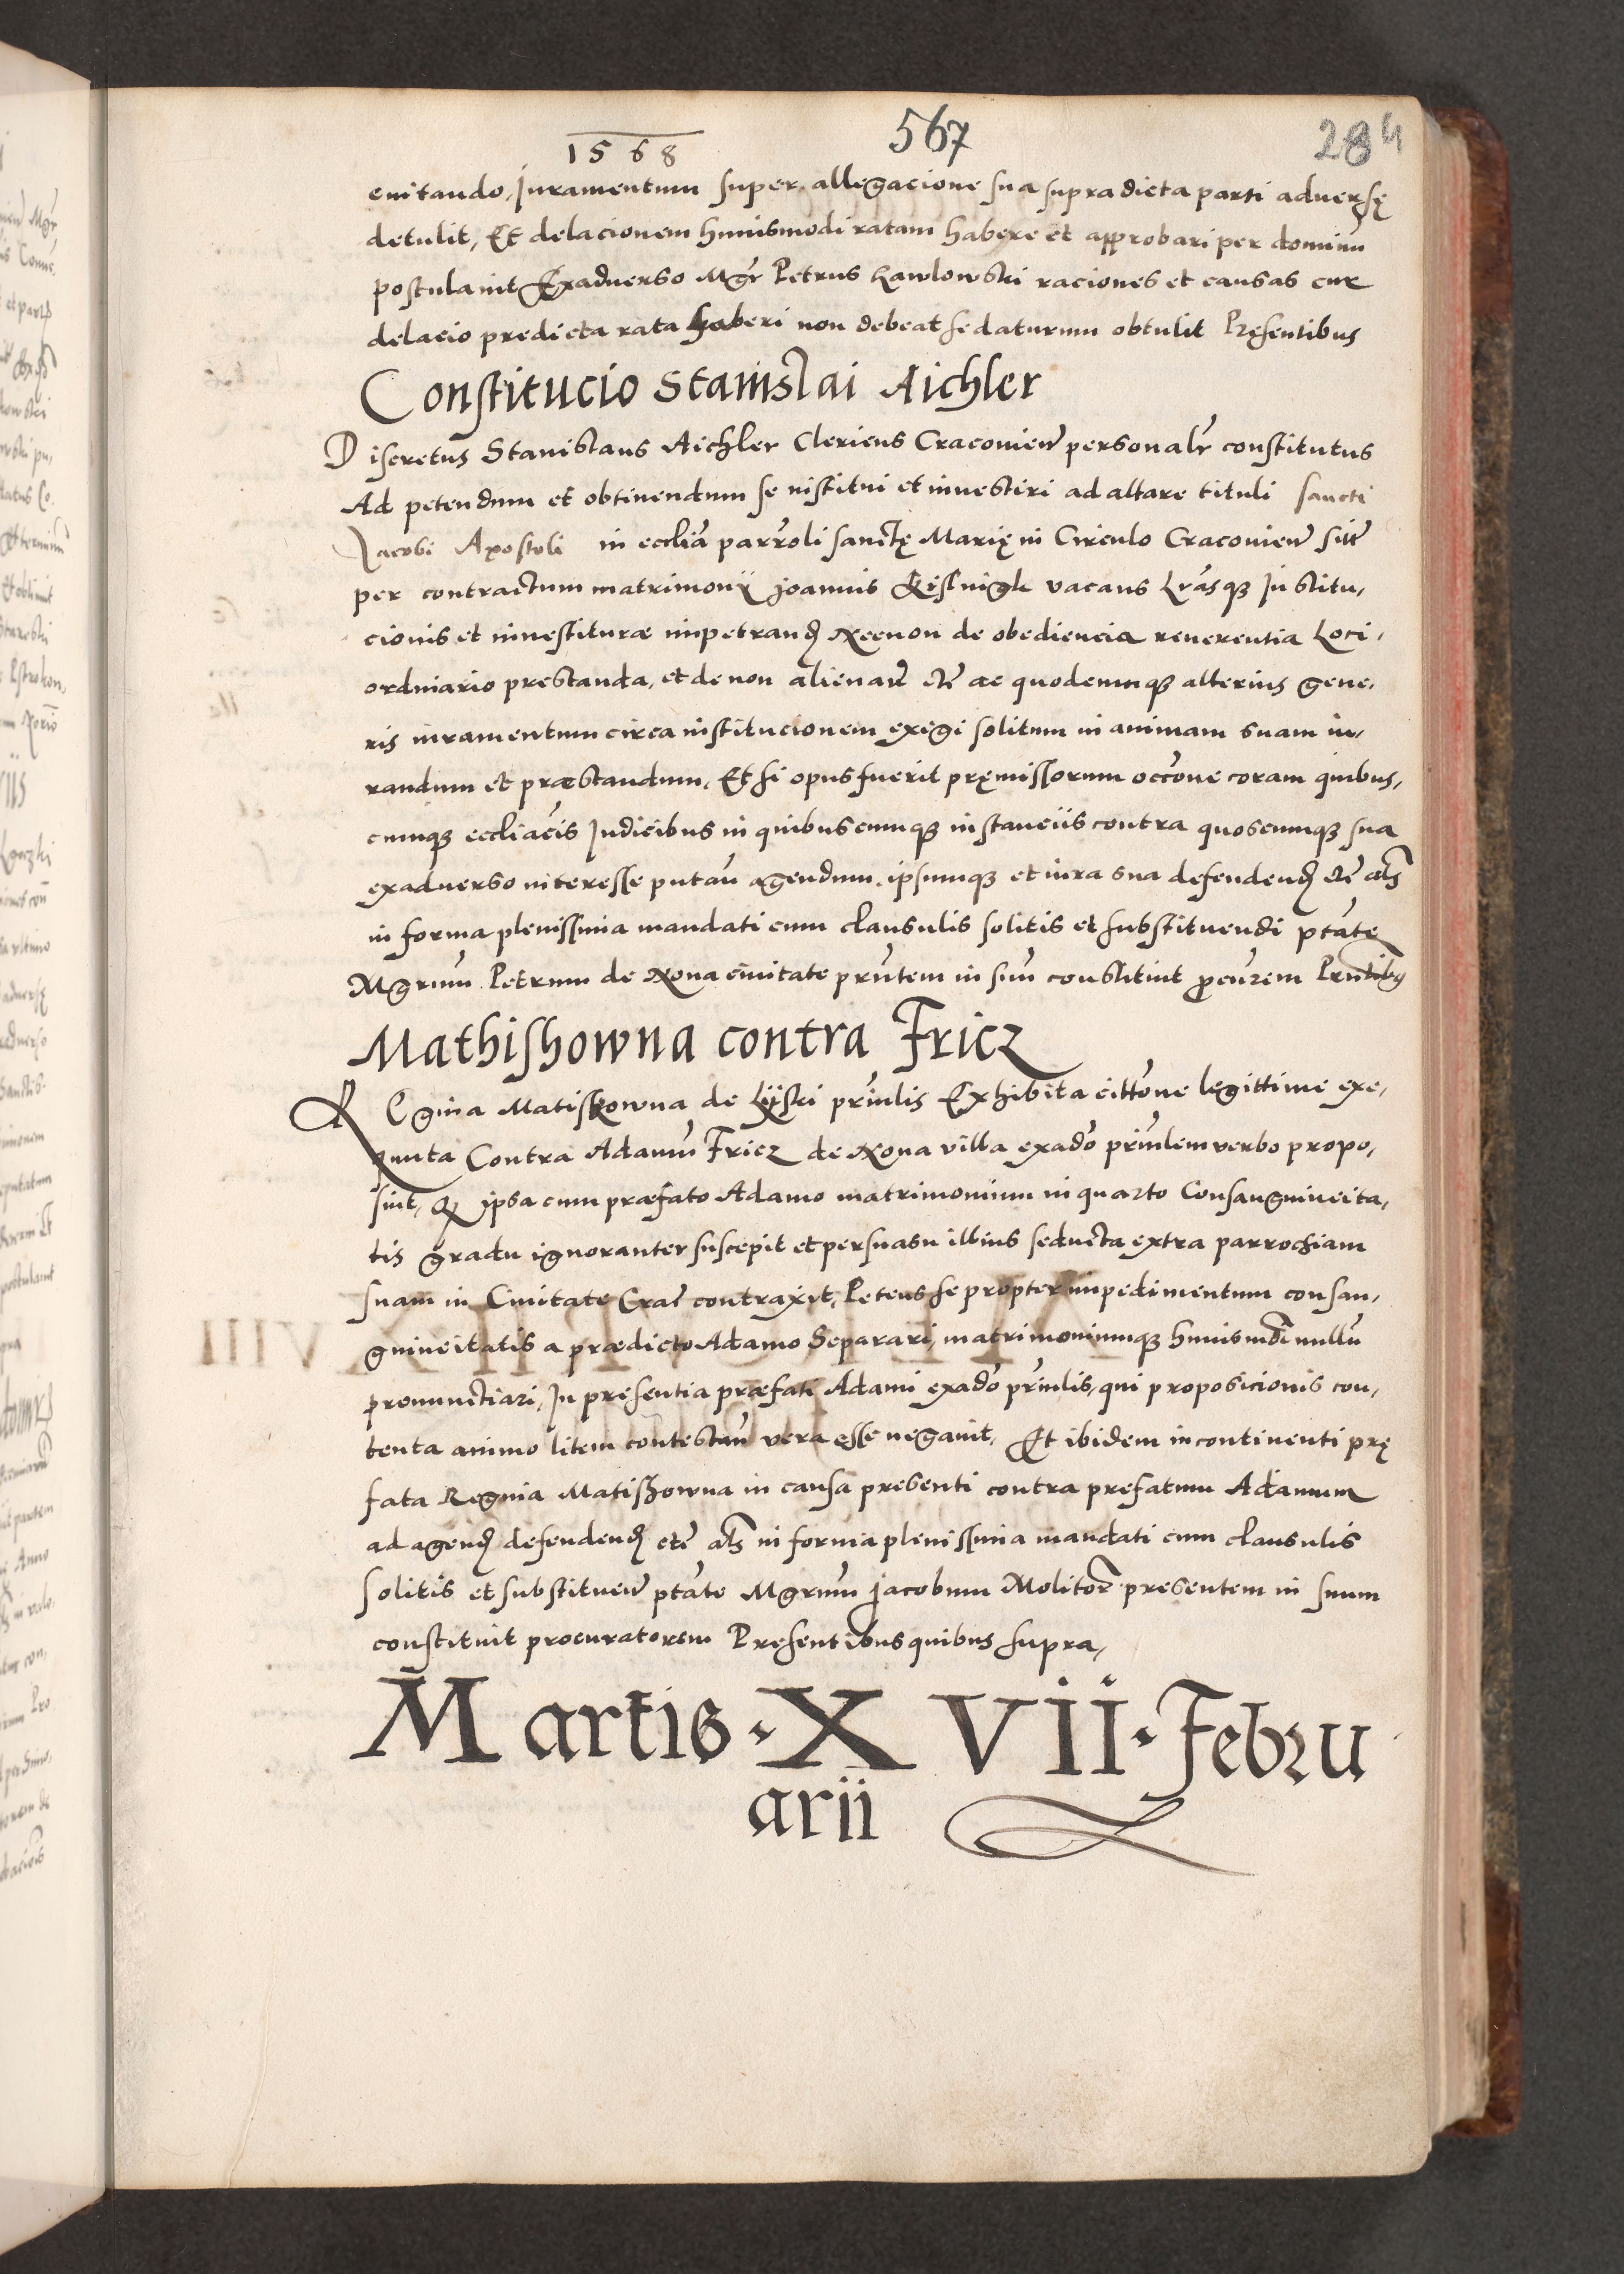 1568
567
284
evitando, Iuramentum super allegacione sua supradicta parti adversę
detulit, Et delacionem huiusmodi ratam habere et approbari per dominũ
postulavit Exadverso Mgr̃ Petrus Lawlowski raciones et causas cur
delacio predicta rata haberi non debeat se daturum obtulit Pręsentibus
Constitucio Stanislai Aichler
Discretus Stanislaus Aichler Clericus Cracovień personalr̃ constitutus
Ad petendum et obtinendum se institui et investiri ad altare tituli sancti
Jacobi Apostoli in eccliã parr̃oli sanctę Marię in Circulo Cracovień sitt̃
per contractum matrimonii Joannis vacans Lr̃asq₃ Institu,
cionis et investituræ impetranđ Necnon de obediencia reverentia Loci,
ordinario prestanda, et de non alienañ etc̃ ac quodcumq₃ alterius gene,
ris iuramentum circa institucionem exigi solitum in animam suam iu,
randum et præstandum, Et si opus fuerit pręmissorum occõne coram quibus,
cumq₃ eccliãcis Iudicibus in quibuscumq₃ instanciis contra quoscumq₃ sua
exadverso interesse putañ agendum, ipsumq₃ et iura sua defendenđ etc̃ als̃
in forma plenissima mandati cum clausulis solitis et substituendi ptãte
Mgrum̃ Petrum de Nova civitate prñtem in suũ constituit procur̃em Prñtibus
Mathishowna contra Fricz
REgina Matiskowna de Lijski prinl̃is Exhibita cittõne legittime exe,
quuta Contra Adamũ Fricz de Nova villa exadṽo prinl̃em verbo propo,
suit, q̃ ipsa cum præfato Adamo matrimonium in quarto Consanguineita,
tis gradu ignoranter suscepit et persuasu illius seducta extra parrochiam
suam in Civitate Crac̃ contraxit, Petens se propter impedimentum consan,
guineitatis a prædicto Adamo Separari, matrimoniumq₃ huiusmo͂i nullũ
pronunctiari, In presentia præfati Adami exadṽo prinl̃is, qui proposicionis con,
tenta animo litem contestañ vera esse negavit, Et ibidem incontinenti prę
fata Regina Matishowna in causa presenti contra prefatum Adamum
ad agenđ defendenđ etc̃ als̃ in forma plenissima mandati cum clausulis
solitis et substitueñ ptãte Mgrum̃ Jacobum Molitor̃ presentem in suum
constituit procuratorem Presentibus quibus supra,
Martis · X VII · Febru
arii